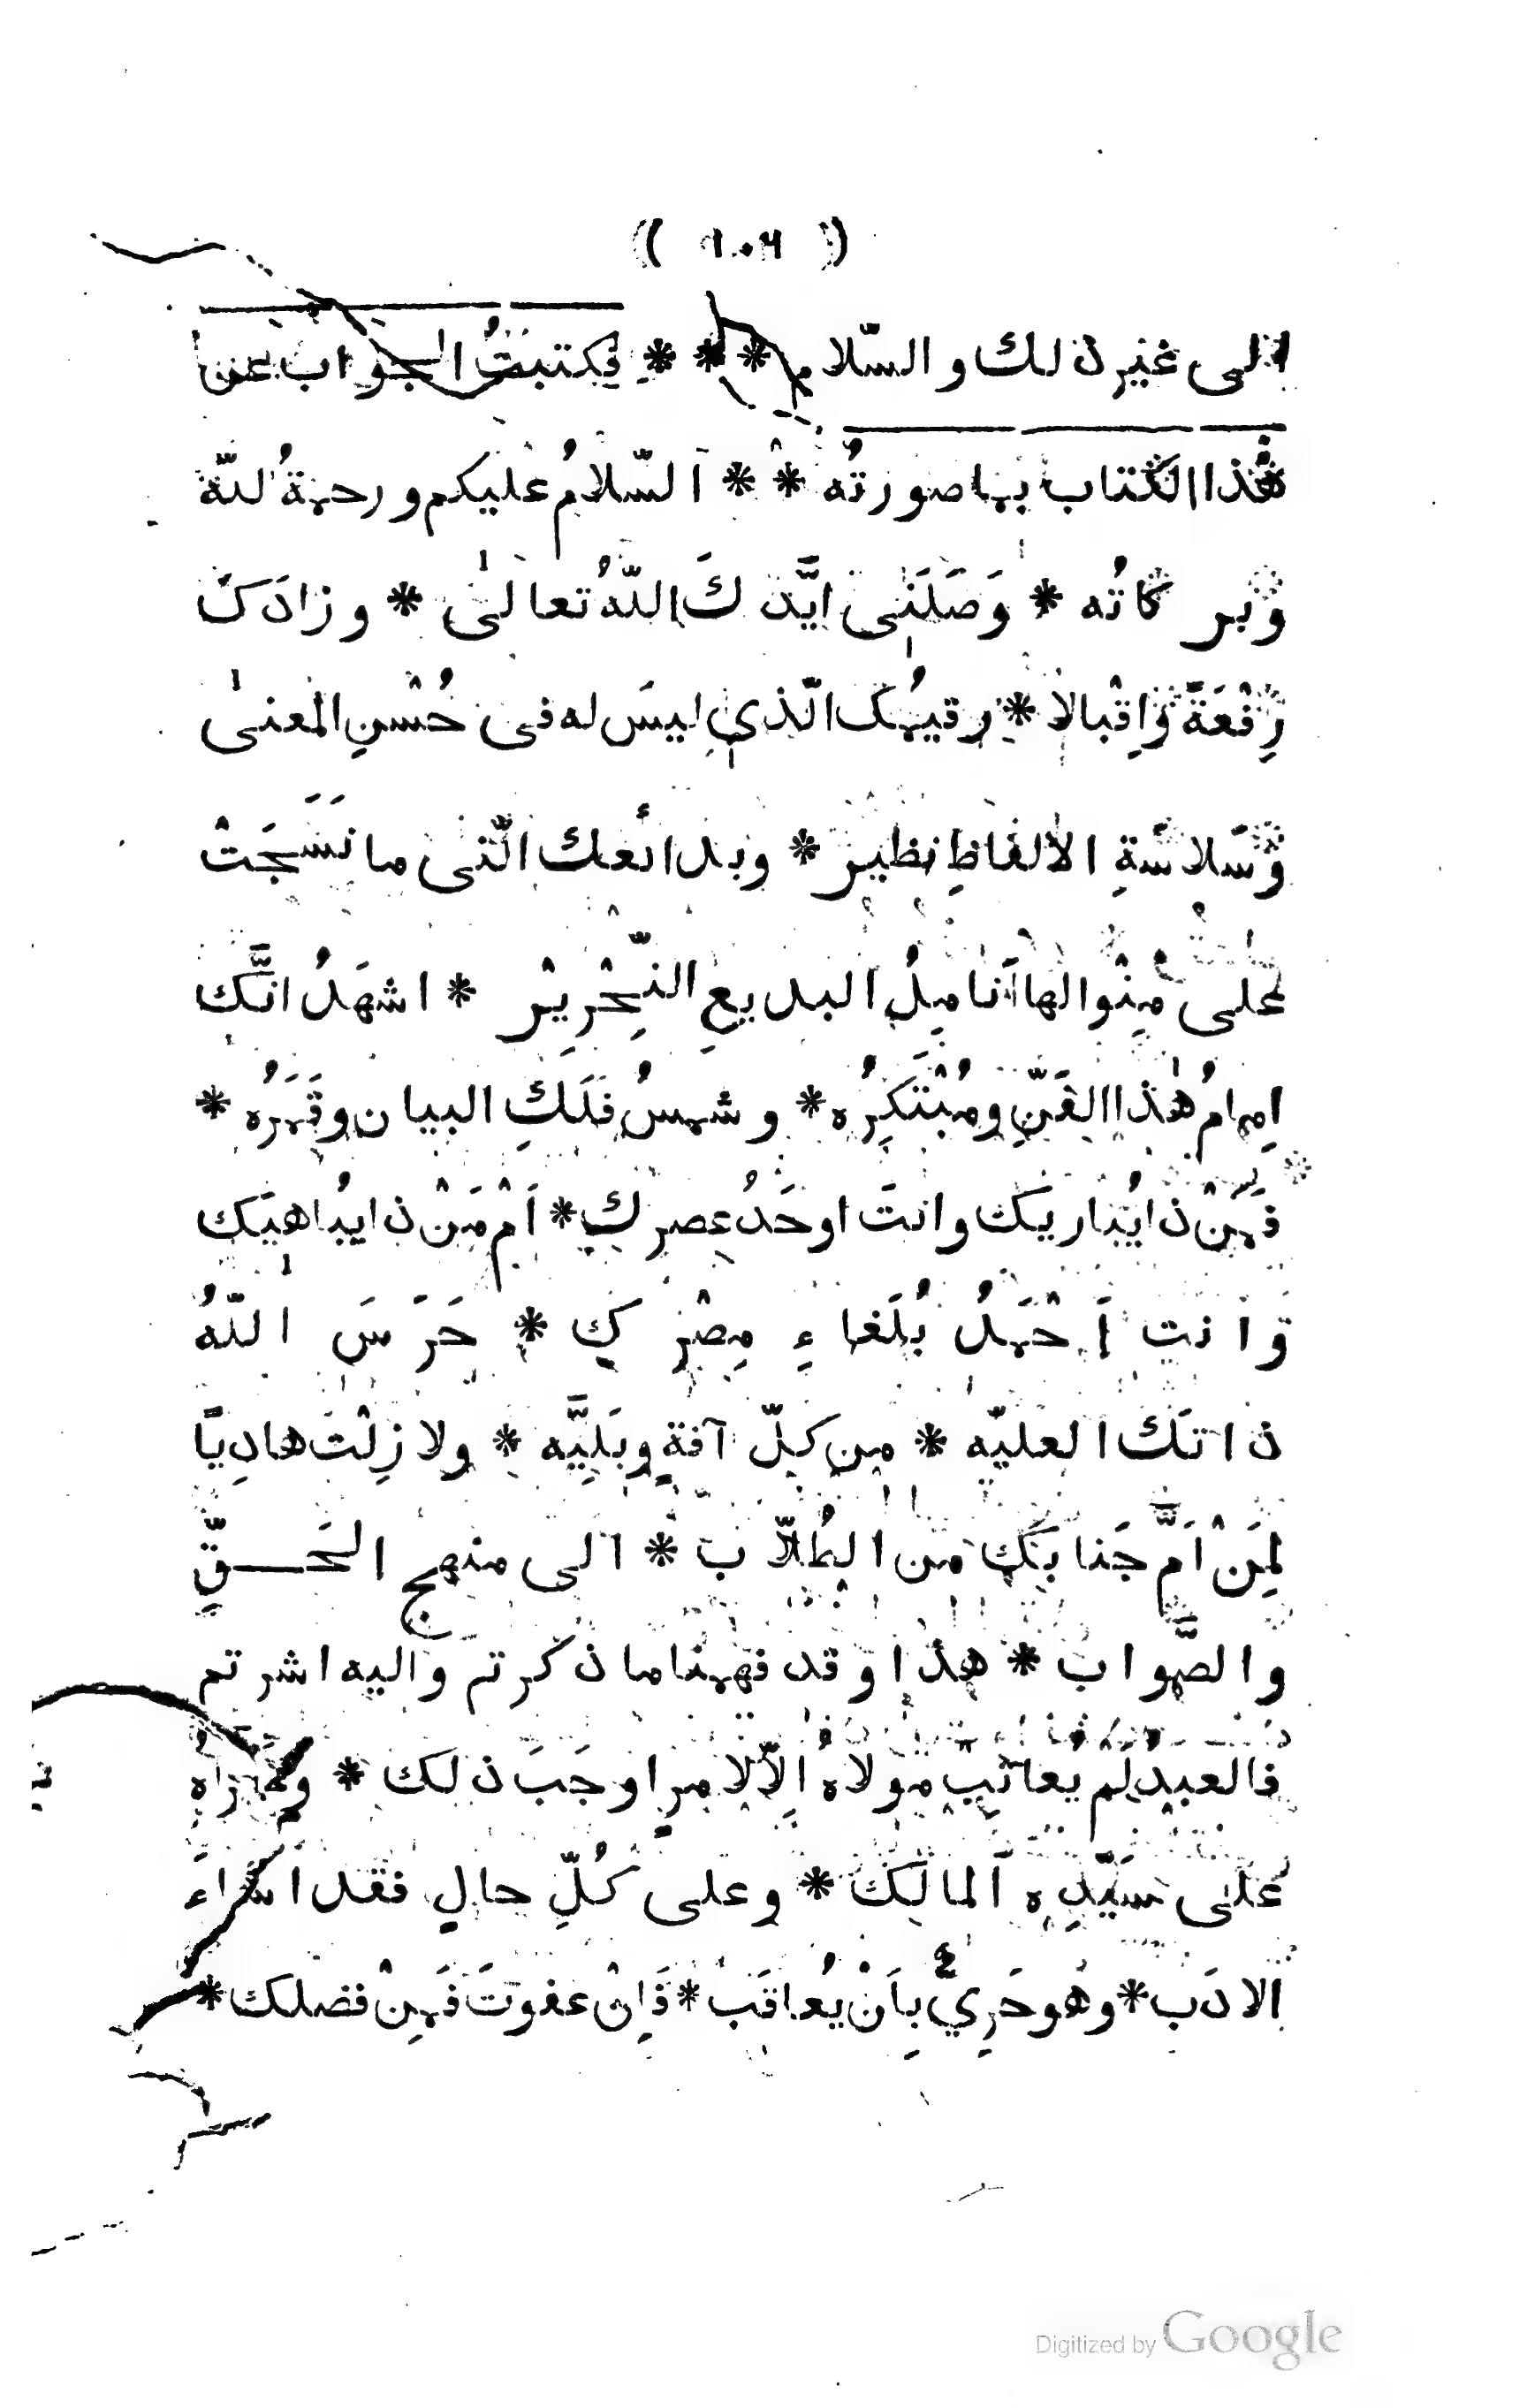 (( ١٠٦ ))
الى غير ذلك والسّلام * * * فكتبتُ الجواب عن
هٰذا الكتاب بما صورتُه * * السّلامُ عليكم ورحمةُ اللّه
وبركاتُه * وَصَلَنى ايَّدكَ اللّهُ تعالىٰ * وزادَكَ
رِفْعَةً واِقْبالا * رقيمُك الّذى ليسَ له فى حُسْنِ المعنىٰ
وسَلاسَةِ الالفاظِ نظير * وبدائعك الّتى ما نَسَجَتْ
على مِنْوالها اَنامِلُ البديعِ النِّحْرِيْر * اشهَدُ انَّك
اِمامُ هٰذا الفَنِّ ومُبْتَكِرُه * وشمسُ فَلَكِ البيان وقَمَرُه *
فَمَنْ ذا يُباريك وانتَ اوحَدُ عصرك * اَمْ مَنْ ذا يُباهيَك
وَانت اَحْمَدُ بُلَغاءِ مِصْرِك * حَرَسَ اللّهُ
ذاتَك العليّه * من كلّ آفةٍ وبَلِيَّه * ولازِلْتَ هادِيًا
لِمَنْ اَمَّ جَنابَك من الطُلاّب * الى منهج الحَــقِّ
والصَّواب * هذا وقد فهمنا ما ذكرتم واليه اشرتم
فالعبدُ لم يُعاتِب مولاهُ اِلاّ لامرٍ اوجَبَ ذلك *
علىٰ سَيِّدِه المالك * وعلى كُلِّ حالٍ فقد اَساء
الادَب * وهُو حَرِيٌّ بِاَنْ يُعاقَب * فَاِنْ عفوتَ فَمِنْ فضلك *
Digitized by Google